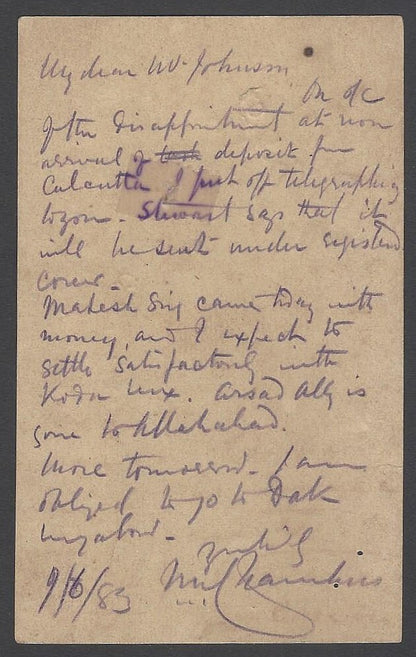 My dear Mr Johnson
On a/c
of the disappointment at non
arrival of deposit from
Calcutta I put off telegraphing
to you. Stewart says that it
will be sent under registered
cover.
Mahesh Sing came today with
money, and I expect to
settle satisfactorily with
Koda Bux. Arsad Ally is
gone to Allahabad.
More tomorrow. I am
obliged to go to Dak
myself.
Yours truly
9/6/83